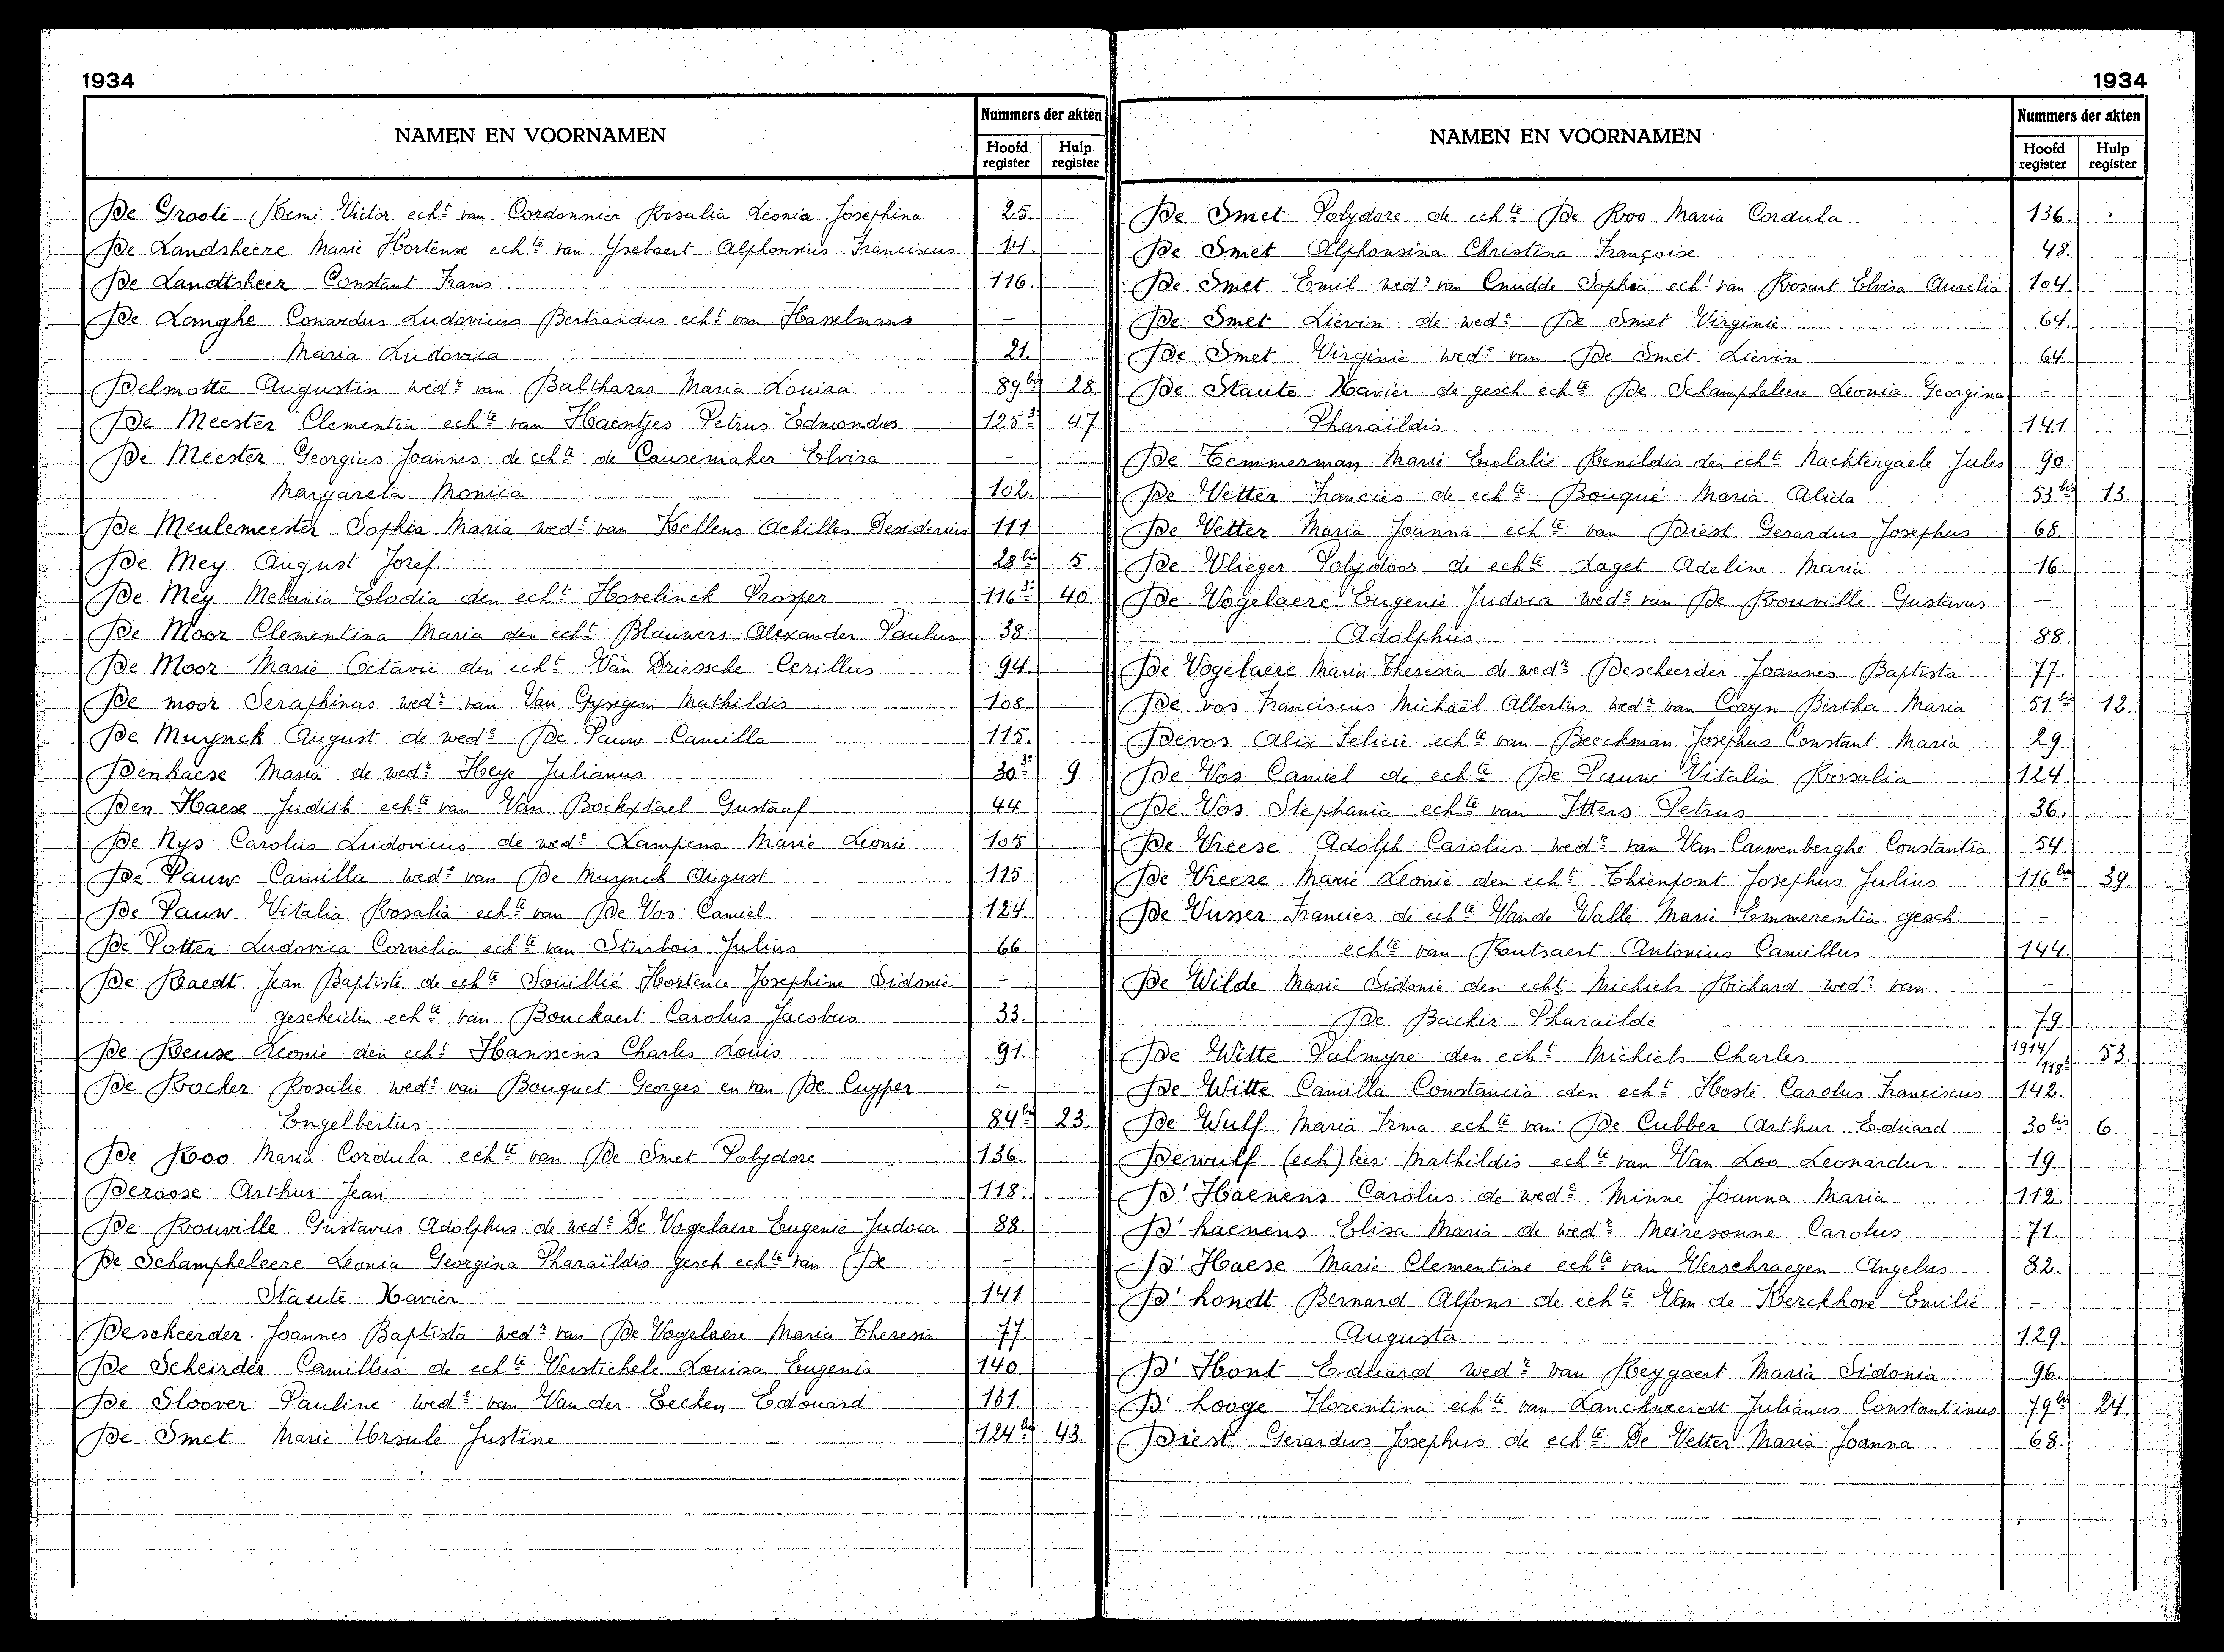 1934
NAMEN EN VOORNAMEN
Nummers der akten
Hoofd register
Hulp register
De Groote Remi Victor echt van Cordonnier Rosalia Leonia Josephina 25.
De Landsheere Marie Hortense echte van Ysebaert Alphonsius Franciscus 14.
De Landtsheer Constant Frans 116.
De Langhe Conardus Ludovicus Bertrandus echt van Hasselmans —
Maria Ludovica 21.
Delmotte Augustin wedr van Balthasar Maria Louisa 89bis 28.
De Meester Clementia echte van Haentjes Petrus Edmondus 125 3: 47
De Meester Georgius Joannes de echte de Causemaker Elvira —
Margareta Monica 102.
De Meulemeester Sophia Maria wede van Kellens Achilles Desiderius 111
De Mey August Jozef. 28bis 5
De Mey Melania Elodia den echt Hovelinck Prosper 116 3: 40.
De Moor Clementina Maria den echt Blauwers Alexander Paulus 38.
De Moor Marie Octavie den echt Van Driessche Cerillus 94.
De moor Seraphinus wedr van Van Gysegem Mathildis 108.
De Muynck August de wede De Pauw Camilla 115.
Denhaese Maria de wedr Heye Julianus 30 3: 9
Den Haese Judith echte van Van Bockxtael Gustaaf 44
De Nys Carolus Ludovicus de wede Lampens Marie Leonie 105
De Pauw Camilla wede van De Muynck August 115
De Pauw Vitalia Rosalia echte van De Vos Camiel 124.
De Potter Ludovica Cornelia echte van Sturbois Julius 66.
De Raedt Jean Baptiste de echte Souillié Hortence Josephine Sidonie —
gescheiden echte van Bouckaert Carolus Jacobus 33.
De Reuse Leonie den echt Hanssens Charles Louis 91.
De Rocker Rosalie wede van Bouquet Georges en van De Cuyper —
Engelbertus 84bis 23.
De Roo Maria Cordula echte van De Smet Polydore 136.
Deroose Arthur Jean 118.
De Rouville Gustavus Adolphus de wede De Vogelaere Eugenie Judoca 88.
De Schampheleere Leonia Georgina Pharaïldis gesch echte van De —
Staute Xavier 141
Descheerder Joannes Baptista wedr van De Vogelaere Maria Theresia 77.
De Scheirder Camillus de echte Verstichele Louisa Eugenia 140
De Sloover Pauline wede van Van der Eecken Edouard 131.
De Smet Marie Ursule Justine 124bis 43.
1934
NAMEN EN VOORNAMEN
Nummers der akten
Hoofd register
Hulp register
De Smet Polydore de echte De Roo Maria Cordula 136.
De Smet Alphonsina Christina Françoise 48.
De Smet Emil wedr van Cnudde Sophia echt van Rosart Elvira Aurelia 104.
De Smet Liévin de wede De Smet Virginie 64.
De Smet Virginie wede van De Smet Liévin 64.
De Staute Xavier de gesch echte De Schampheleere Leonia Georgina —
Pharaïldis 141
De Temmerman Marie Eulalie Renildis den echt Nachtergaele Jules 90.
De Vetter Francies de echte Bouqué Maria Alida 53bis 13.
De Vetter Maria Joanna echte van Diest Gerardus Josephus 68.
De Vlieger Polydoor de echte Laget Adeline Maria 16.
De Vogelaere Eugenie Judoca wede van De Rouville Gustavus —
Adolphus 88.
De Vogelaere Maria Theresia de wedr Descheerder Joannes Baptista 77.
De vos Franciscus Michaël Albertus wedr van Coryn Bertha Maria 51bis 12.
Devos Alix Felicie echte van Beeckman Josephus Constant Maria 29.
De Vos Camiel de echte De Pauw Vitalia Rosalia 124.
De Vos Stephania echte van Itters Petrus 36.
De Vreese Adolph Carolus wedr van Van Cauwenberghe Constantia 54.
De Vreese Marie Leonie den echt Thienfont Josephus Julius 116bis 39.
De Vusser Francies de echte Van de Walle Marie Emmerentia gesch. —
echte van Routsaert Antonius Camillus 144.
De Wilde Marie Sidonie den echt Michiels Richard wedr van —
De Backer Pharaïlde 79.
De Witte Palmyre den echt Michiels Charles 1914/118: 53.
De Witte Camilla Constancia den echt Hoste Carolus Franciscus 142.
De Wulf Maria Irma echte van De Cubber Arthur Eduard 30bis 6.
Dewulf (ech) lees: Mathildis echte van Van Loo Leonardus 19.
D'Haenens Carolus de wede Minne Joanna Maria 112.
D'haenens Elisa Maria de wedr Meiresonne Carolus 71.
D'Haese Marie Clementine echte van Verschraegen Angelus 82.
D'hondt Bernard Alfons de echte Van de Kerckhove Emilie —
Augusta 129.
D'Hont Eduard wedr van Reygaert Maria Sidonia 96.
D'hooge Florentina echte van Lanckweerdt Julianus Constantinus 79bis 24.
Diest Gerardus Josephus de echte De Vetter Maria Joanna 68.